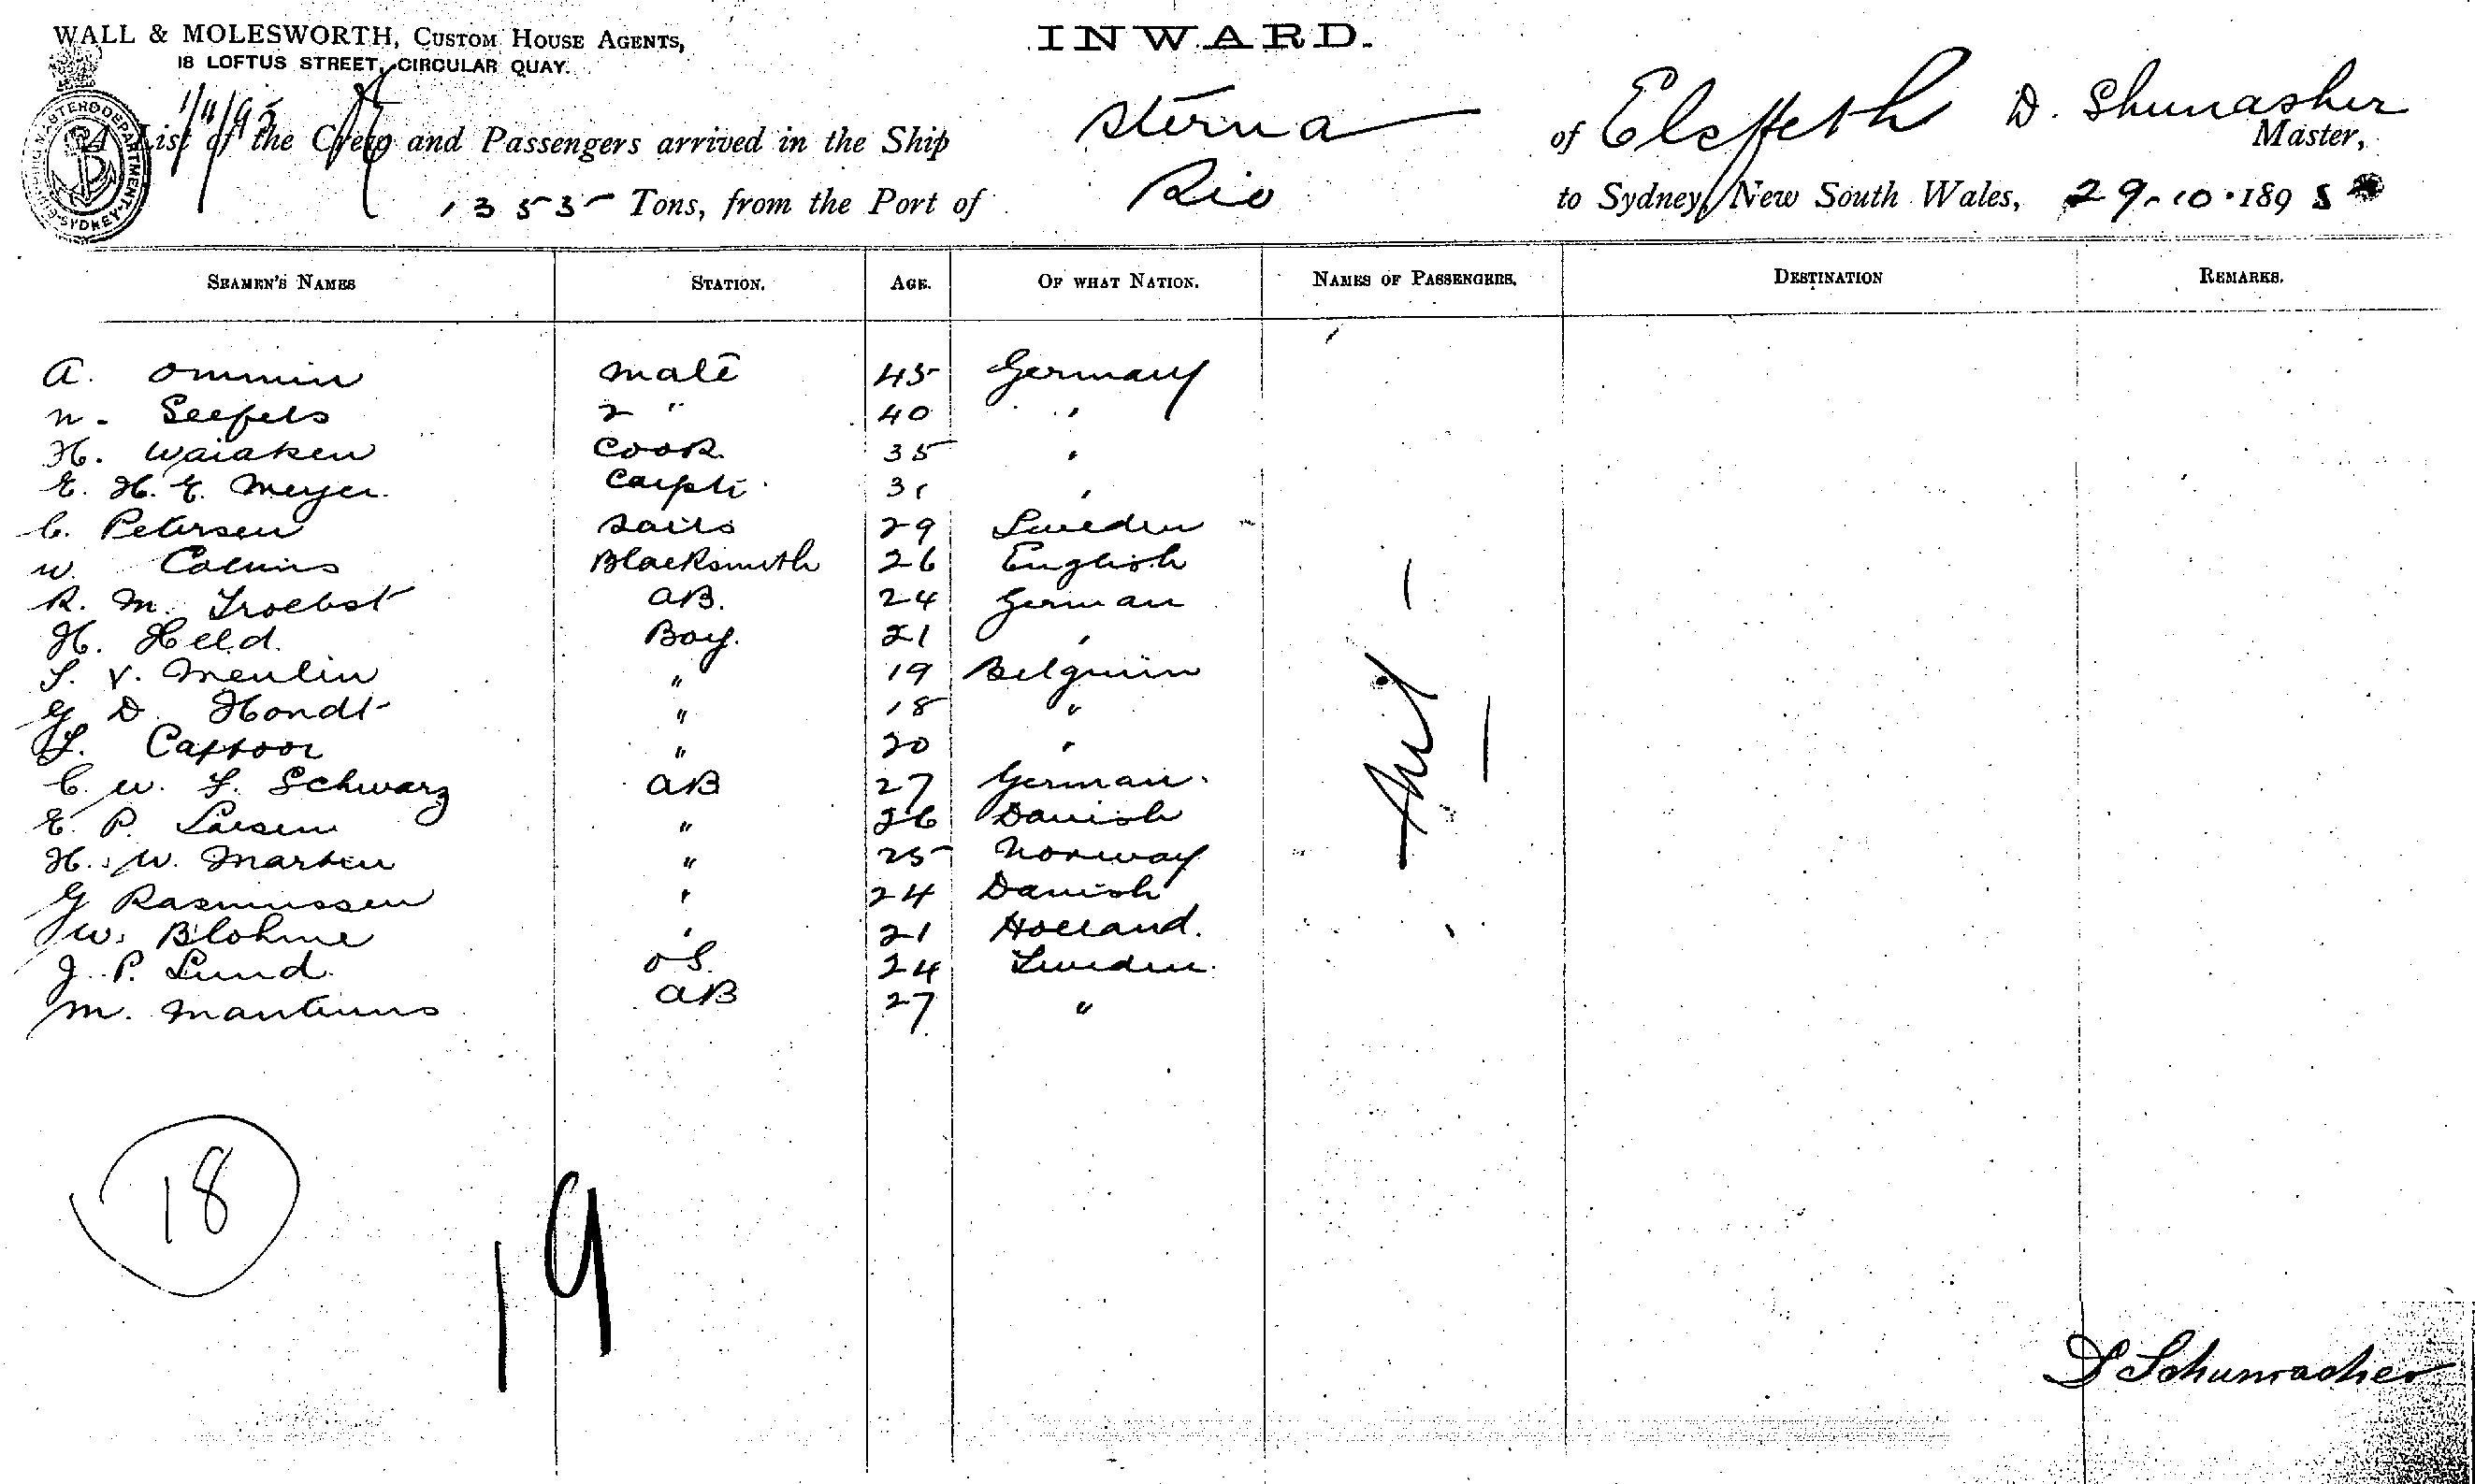 WALL & MOLESWORTH, CUSTOM HOUSE AGENTS,
18 LOFTUS STREET, CIRCULAR QUAY.
INWARD.
1/11/95
A List of the Crew and Passengers arrived in the Ship Sterna of Elsfleth D. Shumasher Master,
1353 Tons, from the Port of Rio to Sydney, New South Wales, 29-10-1895
SEAMEN'S NAMES STATION. AGE. OF WHAT NATION. NAMES OF PASSENGERS. DESTINATION REMARKS.
A. Ommin mate 45 Germany
N. Seefels 2 " 40 "
H. Waiaken Cook 35 "
E. H. E. Meyer Carptr 31 "
C. Petersen Sails 29 Sweden
W. Collins Blacksmith 26 English
R. M. Troebst AB. 24 German
H. Held. Boy. 21 "
S. V. Meulin " 19 Belguim
G D. Hondt " 18 "
L. Cappoor " 20 "
C. W. F. Schwarz AB 27 German.
E. P. Larsen " 26 Danish
H. W. Marten " 25 Norway
G Rasmussen " 24 Danish
W. Blohme " 21 Holland.
J. P. Lund. OS. 24 Sweden.
M. AB 27 "
Nil
18
19
D Schumacher